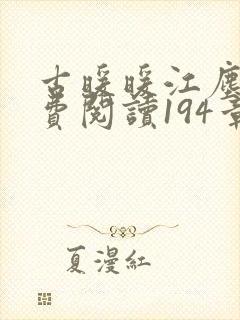 古暖暖江塵
費閱讀194章
夏漫紅